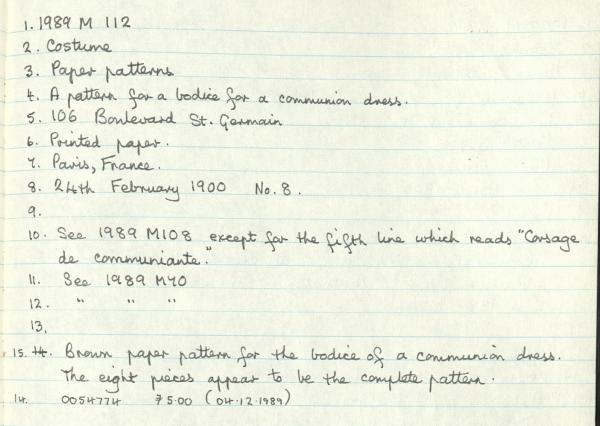 1. 1989 M 112
2. Costume
3. Paper patterns
4. A pattern for a bodice for a communion dress.
5. 106 Boulevard St. Germain
6. Printed paper.
7. Paris, France.
8. 24th February 1900 No. 8.
9.
10. See 1989 M108 except for the fifth line which reads "Corsage
de communiante."
11. See 1989 M70
12. " " "
13.
15. 14. Brown paper pattern for the bodice of a communion dress.
The eight pieces appear to be the complete pattern.
14. 0054774 75.00 (04.12.1989)